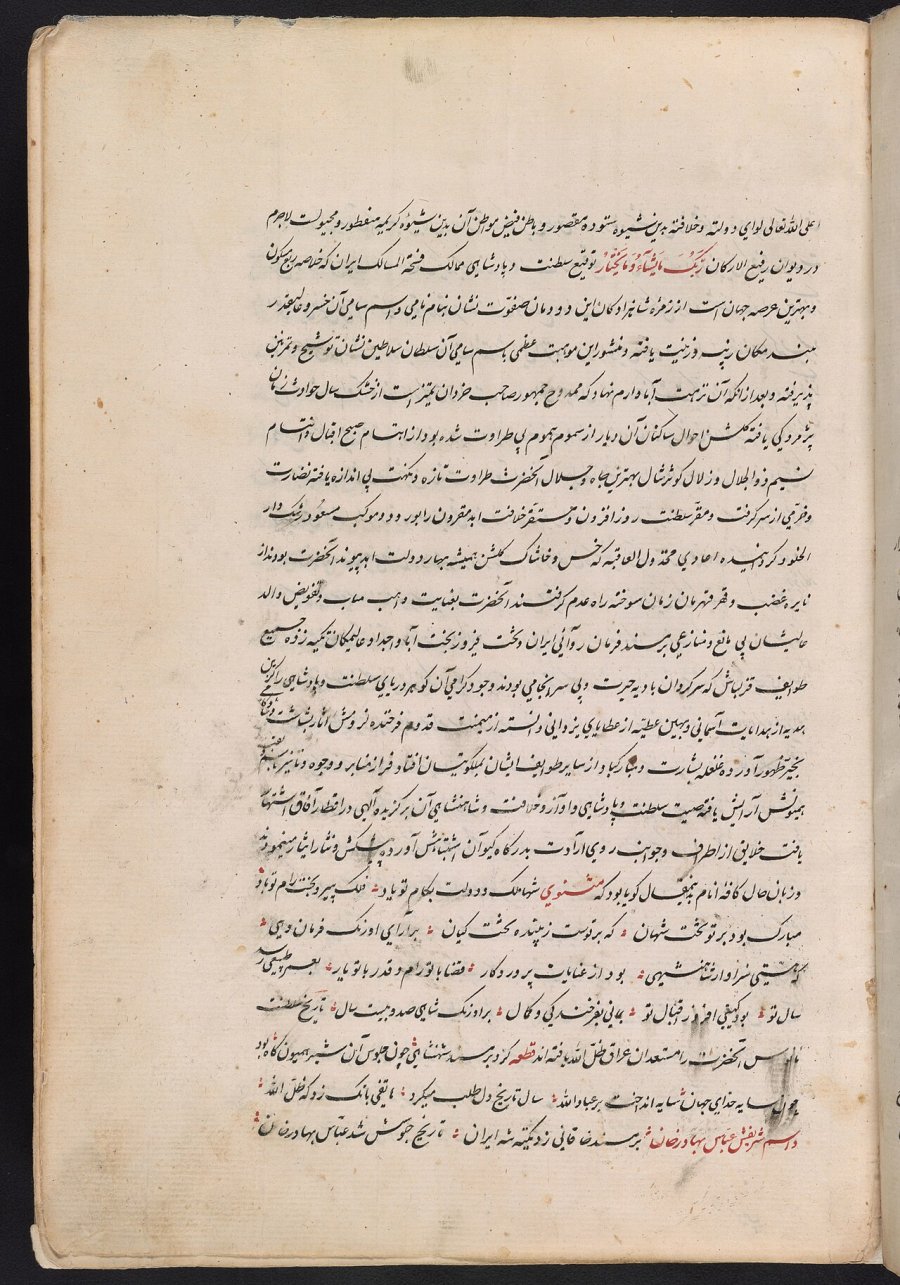 اعلی الله تعالی لوای دولته و خلافته بدین شیوه ستوده مقصور و باطن فیض مواطن آن بدین شیوه کریمه منفطور و مجبولست لاجرم
در دیوان رفیع الارکان رَبُّکَ مایَشآءُ وَمَایَخْتَارُ توقیع سلطنت و پادشاهی ممالک فسحة المسالک ایران که خلاصه ربع مسکون
و بهترین عرصه جهان است از زمره شاهزادکان این دودمان صفوت نشان بنام نامی و اسم سامی آن خسرو عالیقدر
بلند مکان زیب و زینت یافته و منشور این موهبت عظمی باسم سامی آن سلطان سلاطین نشان توشیح و تزیین
پذیرفته و بعد از آنکه آن نزهت آباد ارم نهاد که ممدوح جمهور صاحب خردان است از خشک سال حوادث زمان
پژمردکی یافته کلشن احوال ساکنان آن دیار از سموم هموم بی طراوت شده بود از ابتسام صبح اقبال و
نسیم ذوالجلال و زلال کوثر مثال بهترین جاه و جلال آنحضرت طراوت تازه و نکهت بی اندازه یافته نضارت
و خرّمی از سر کرفت و مقرّ سلطنت روز افزون و مستقر خلافت ابد مقرون را بورود موکب مسعود رشک دار
الخلود کردانیده اعادی مخذول العاقبه که خس و خاشاک کلشن همیشه بهار دولت ابد پیوند آنحضرت بودند از
نایره غضب و قهر قهرمان زمان سوخته راه عدم کرفتند آنحضرت بعنایت واهب مناب و تفویض والد
عالیشان بی مانع و منازعی بر مسند فرمان روآئی ایران و تخت فیروز بخت آبا و اجداد عالیمکان تکیه زده جمیع
طوایف قزلباش که سرکردان بادیه حیرت و بی سرانجامی بودند وجود کرامی آن کوهر دریای سلطنت و پادشاهی را کزین
هدیه از هدایات آسمانی و بهین عطیّه از عطایای یزدانی دانسته از میمنت قدوم فرخنده لزومش آثار بشاشت
بحیّز ظهور آورده غلغله بشارت و مبارکباد از سایر طوایف انسان بملکوتیان افتاد فراز منابر و وجوه دنانیر باسم
همیونش آرایش یافته صیت سلطنت و پادشاهی و آوازه خلافت و شاهنشاهی آن برکزیده الهی در اقطار آفاق اشتهار
یافت خلایق از اطراف و جوانب روی ارادت بدرکاه کیوان اشتباهش آورده پیشکش و نثار ایثار مینمودند
و زبان حال کافّه انام بدین مقال کویا بود که مثنوی شها ملک و دولت بکام تو باد فلک پیر و بخت رام تو باد
مبارک بود بر تو تخت شهان که بر تست زیبنده تخت کیان برآرای اورنک فرمان دهی
که هستی سزاوار شاهنشهی بود از عنایات پروردکار قضا با تو رام و قدر با تو یار بعمر طبیعی رسد
سال تو بود کیفی افزا ز اقبال تو بمانی بفرخندکی و کمال بر اورنک شاهی صد و بیست سال تاریخ سلطنت
جلوس آنحضرت را مستعدان عراق ظلّ الله یافته اند قطعه کرد بر مسند شهنشاهی چون جلوس آن شه همیون کاه بود
چون سایه خدای جهان سایه انداخت بر عباد الله سال تاریخ دل طلب میکرد هاتفی بانک زد که ظلّ الله
و اسم شریفش عباس بهادر خان بر مسند خاقانی زد تکیه شه ایران تاریخ جلوسش شد عباس بهادر خان